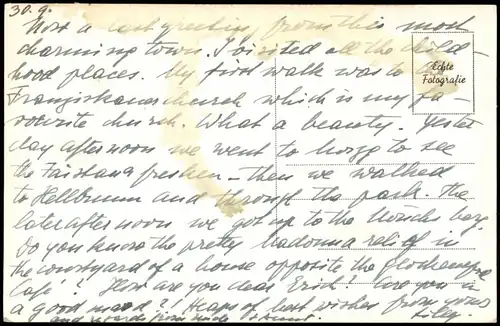 30.9.
Now a last greeting from this most
charming town. I visited all the child-
hood places. My first walk was to the
Echte
Fotografie
Franziskanerchurch which is my fa-
vourite church. What a beauty. Yester-
day afternoon we went to to see
the frescoes – then we walked
to Hellbrunn and through the park. The
later afternoon we got up to the Mönchsberg.
Do you know the pretty Madonna relief in
the courtyard of a house opposite the Glockenspiel
Café? How are you dear Erich? Are you in
a good mood?! Heaps of best wishes from yours
Lilly
and